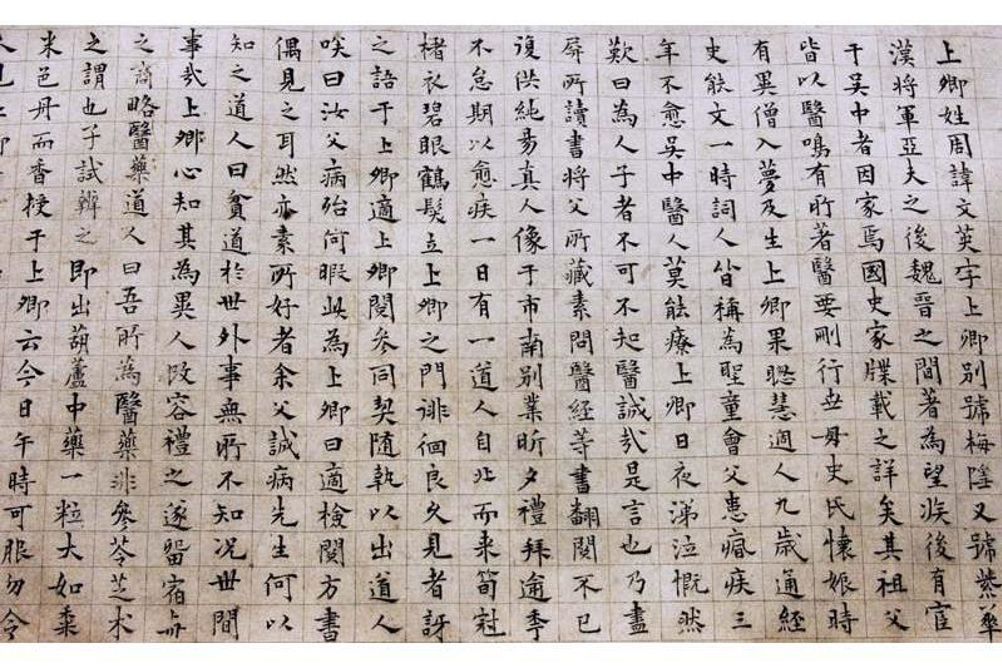 上卿姓周諱文英字上卿別號梅隱又號紫華
漢將軍亞夫之後魏晉之間著為望族後有宦
于吳中者因家焉國史家牒載之詳矣其祖父
皆以醫鳴有所著醫要刪行世母史氏懷娠時
有異僧入夢及生上卿果聰慧過人九歲通經
史能文一時詞人皆稱為聖童會父患瘺疾三
年不愈吳中醫人莫能療上卿日夜涕泣慨然
歎曰為人子者不可不知醫誠哉是言也乃盡
屏所讀書將父所藏素問醫經等書翻閱不已
復供純昜真人像于市南別業昕夕禮拜逾季
不怠期以愈疾一日有一道人自北而来筍冠
楮衣碧眼鶴髮立上卿之門徘徊良久見者訝
之語于上卿適上卿閱參同契隨執以出道人
唉曰汝父病殆何暇此為上卿曰適檢閱方書
偶見之耳然亦素所好者余父誠病先生何以
知之道人曰貧道於世外事無所不知况世間
事哉上卿心知其為異人改容禮之遂留宿与
之商略醫藥道人曰吾所為醫藥非參苓芝术
之謂也子試辨之即出葫蘆中藥一粒大如黍
米色丹而香授于上卿云今日午時可服勿令